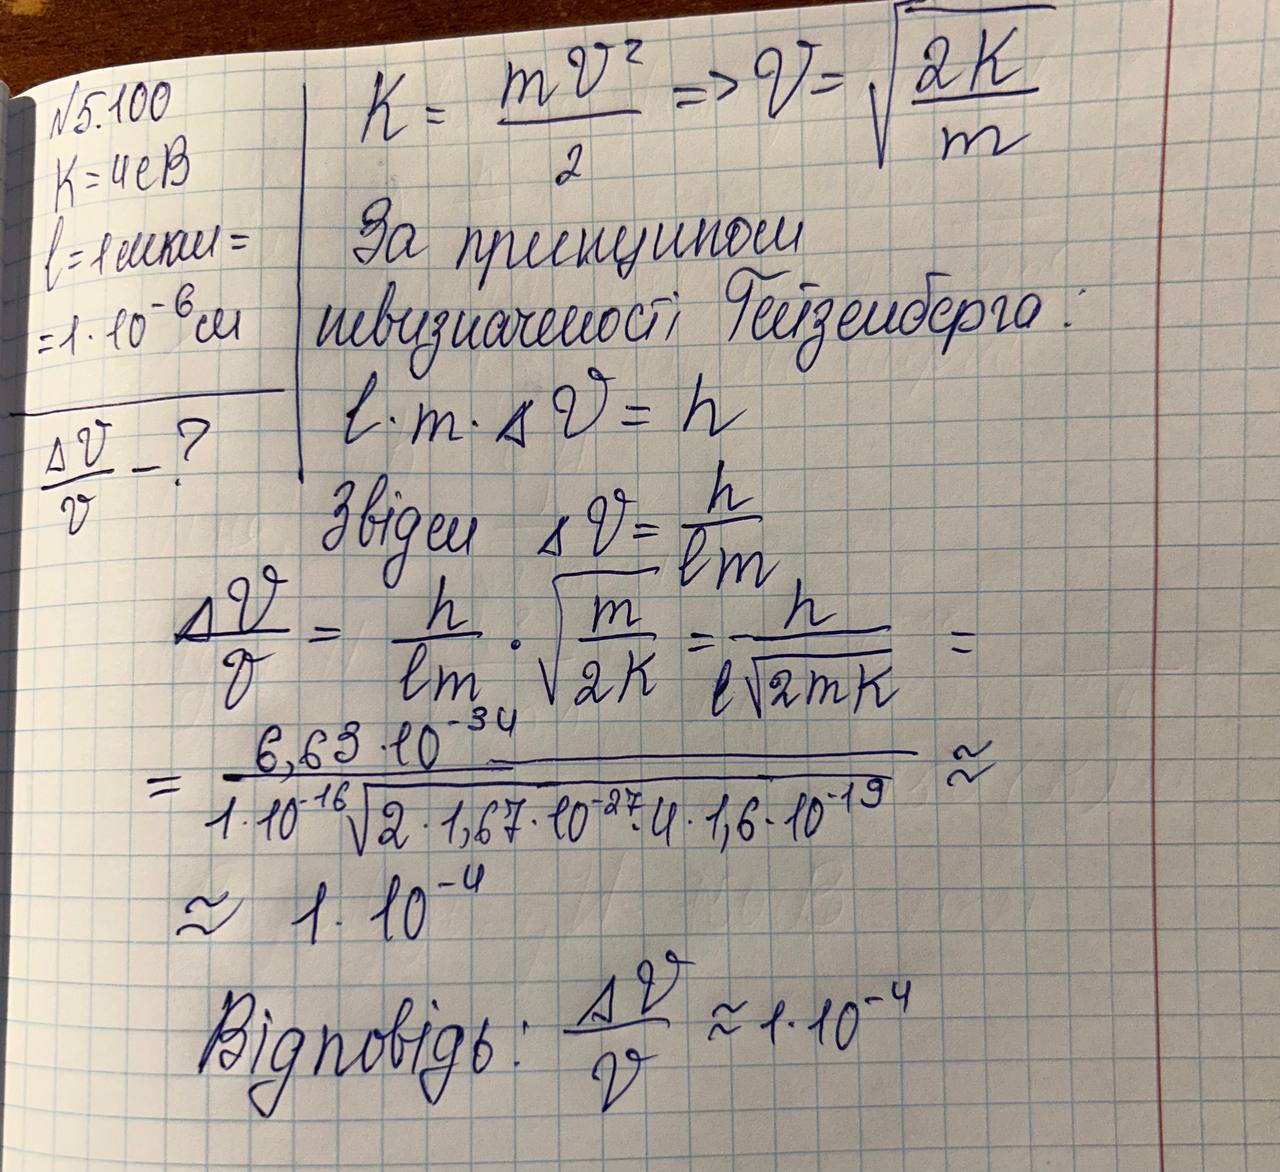 №5.100
K = 4еВ
l = 1мкм =
= 1·10⁻⁶м
ΔV/V - ?
K = mV²/2 => V = √(2K/m)
За принципом
невизначеності Гейзенберга:
l·m·ΔV = h
Звідси ΔV = h/lm
ΔV/V = h/lm · √(m/2K) = h/(l√(2mK)) =
= 6,63·10⁻³⁴/(1·10⁻¹⁶√(2·1,67·10⁻²⁷·4·1,6·10⁻¹⁹)) ≈
≈ 1·10⁻⁴
Відповідь: ΔV/V ≈ 1·10⁻⁴